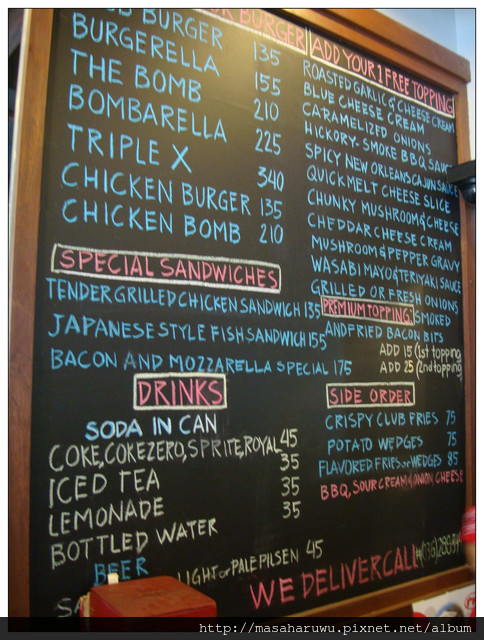 BURGER
BURGERELLA 135
THE BOMB 155
BOMBARELLA 210
TRIPLE X 225
340
CHICKEN BURGER 135
CHICKEN BOMB 210
SPECIAL SANDWICHES
TENDER GRILLED CHICKEN SANDWICH 135
JAPANESE STYLE FISH SANDWICH 155
BACON AND MOZZARELLA SPECIAL 175
DRINKS
SODA IN CAN
COKE, COKEZERO, SPRITE, ROYAL 45
ICED TEA 35
LEMONADE 35
BOTTLED WATER 35
BEER
LIGHT or PALE PILSEN 45
BURGER ADD YOUR 1 FREE TOPPING
ROASTED GARLIC & CHEESE CREAM
BLUE CHEESE CREAM
CARAMELIZED ONIONS
HICKORY-SMOKE BBQ SAUCE
SPICY NEW ORLEANS CAJUN SAUCE
QUICKMELT CHEESE SLICE
CHUNKY MUSHROOM & CHEESE
CHEDDAR CHEESE CREAM
MUSHROOM & PEPPER GRAVY
WASABI MAYO & TERIYAKI SAUCE
GRILLED OR FRESH ONIONS
PREMIUM TOPPING: SMOKED
AND FRIED BACON BITS
ADD 15 (1st topping
ADD 25 (2nd topping
SIDE ORDER
CRISPY CLUB FRIES 75
POTATO WEDGES 75
FLAVORED FRIES or WEDGES 85
BBQ, SOUR CREAM & ONION CHEESE
WE DELIVER CALL
http://masaharuwu.pixnet.net/album